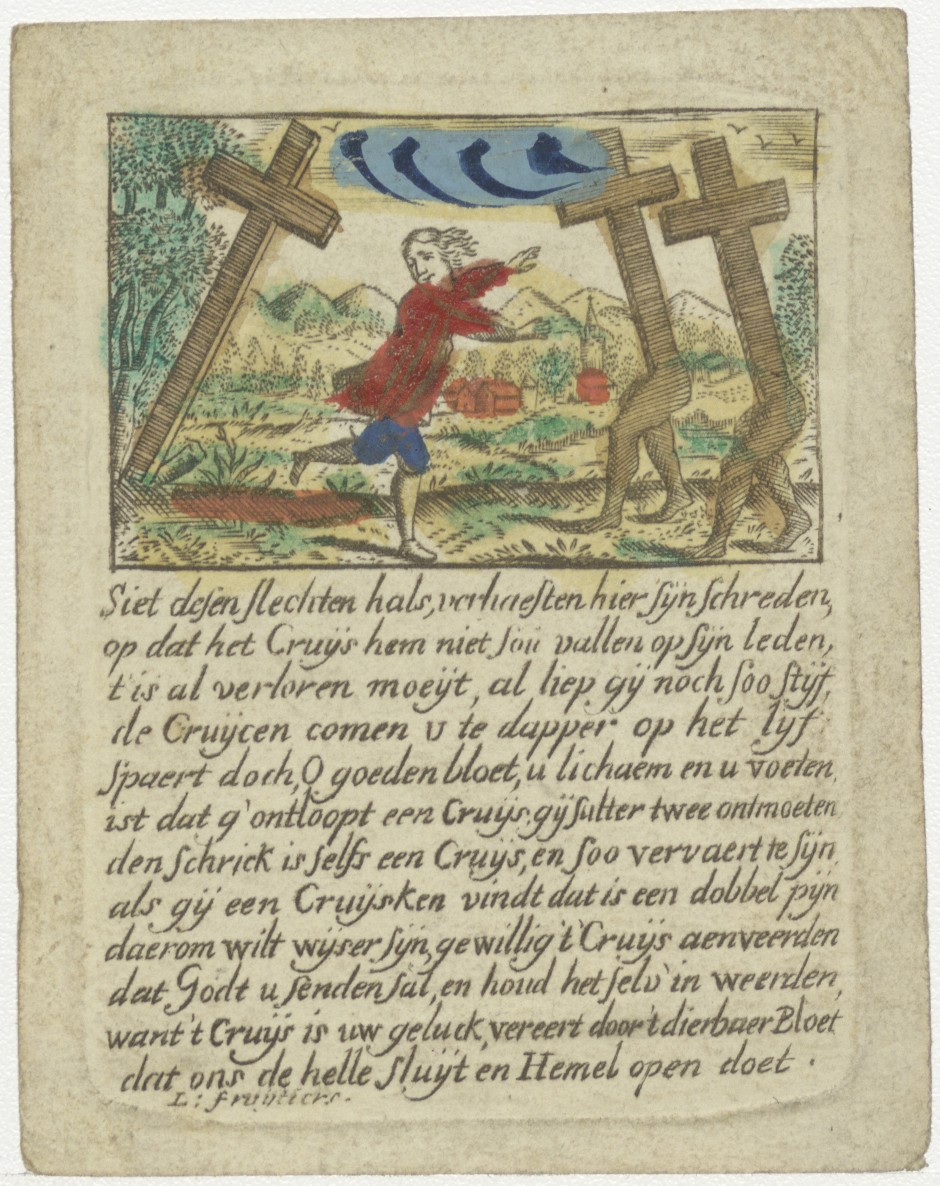 Siet desen slechten hals, verhaesten hier sijn schreden,
op dat het Cruijs hem niet sou vallen op sijn leden,
t'is al verloren moeijt, al liep gij noch soo stijf,
de Cruijcen comen u te dapper op het lijf
spaert doch, O goeden bloet, u lichaem en u voeten,
ist dat g'ontloopt een Cruijs, gij sulter twee ontmoeten
den schrick is selfs een Cruijs, en soo vervaert te sijn
als gij een Cruijsken vindt dat is een dobbel pijn
daerom wilt wijser sijn, gewillig 't Cruijs aenveerden
dat Godt u senden sal, en houd het selv' in weerden,
want 't Cruijs is uw geluck, vereert door 't dierbaer Bloet
dat ons de helle sluijt en Hemel open doet.
L: fruijtiers.